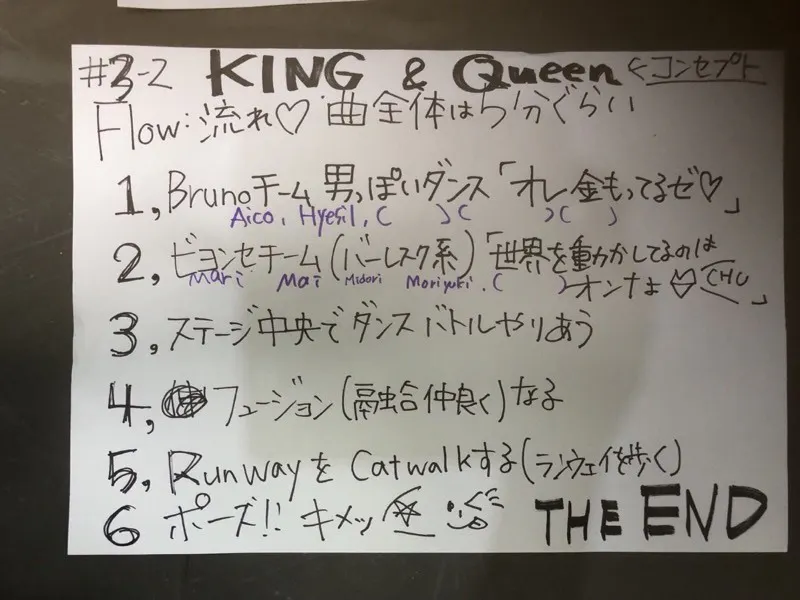 #3-2 KING & Queen ←コンセプト
Flow:流れ♡ 曲全体は5分ぐらい
1, Brunoチーム 男っぽいダンス「オレ金もってるゼ♡」
Aico, Hyesil, ( )( )( )
2, ビヨンセチーム(バーレスク系)「世界を動かしてるのは
Mari Mai Midori Moriyuki, ( )
オンナよ♡CHU」
3, ステージ中央でダンスバトルやりあう
4, フュージョン(融合仲良く)なる
5, RunwayをCatwalkする(ランウェイを歩く)
6 ポーズ!! キメッ☆ THE END